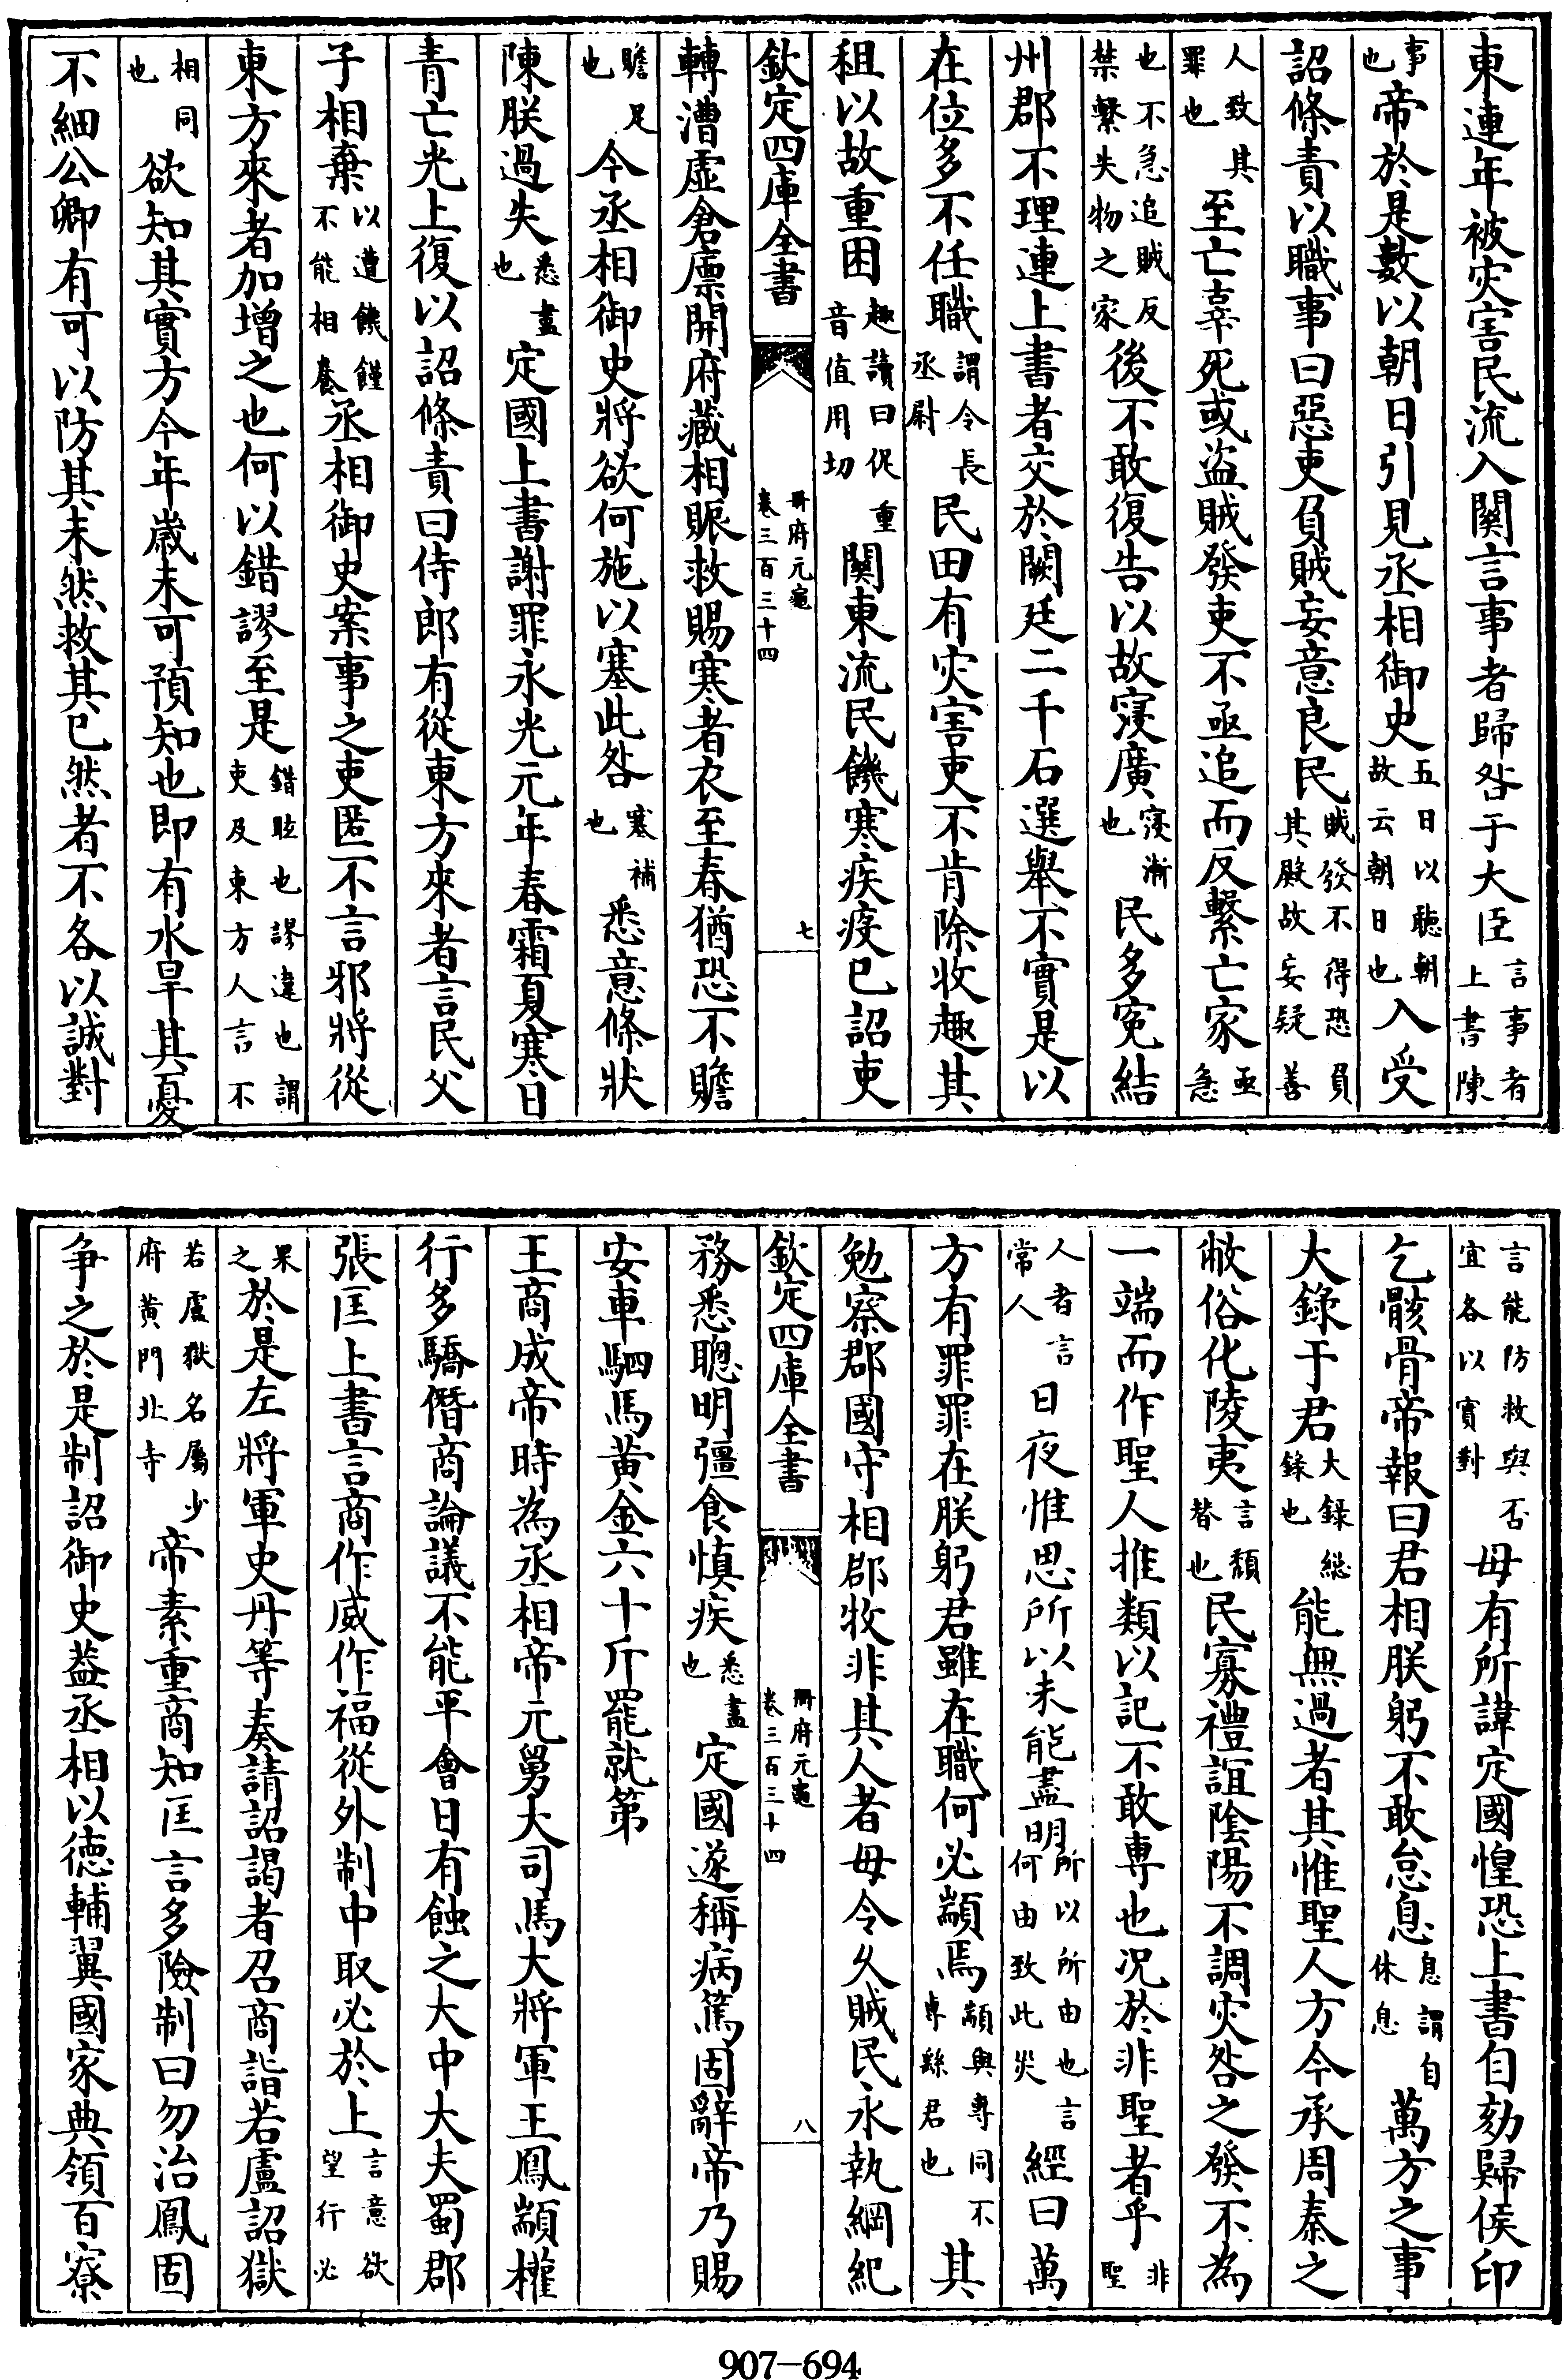 東連年被灾害民流入關言事者歸咎于大臣言事者上書陳
事也帝於是數以朝日引見丞相御史五日以聽朝故云朝日也入受
詔條責以職事曰惡吏負賊妄意良民賊發不得恐負其殿故妄疑善
人致其罪也至亡辜死或盗賊發吏不亟追而反繫亡家亟急
也不急追賊反禁繫失物之家後不敢復告以故寖廣寖漸也民多寃結
州郡不理連上書者交於闕廷二千石選舉不實是以
在位多不任職謂令長丞尉民田有灾害吏不肯除收趣其
租以故重困趣讀曰促重音值用切關東流民饑寒疾疫已詔吏
欽定四庫全書 冊府元龜卷三百三十四 七
轉漕虚倉廪開府藏相賑救賜寒者衣至春猶恐不贍
贍足也今丞相御史將欲何施以塞此咎塞補也悉意條狀
陳朕過失悉盡也定國上書謝罪永光元年春霜夏寒日
青亡光上復以詔條責曰侍郎有從東方來者言民父
子相棄以遭饑饉不能相養丞相御史案事之吏匿不言邪將從
東方來者加增之也何以錯謬至是錯眊也謬違也謂吏及東方人言不
相同也欲知其實方今年歲未可預知也即有水旱其憂
不細公卿有可以防其未然救其已然者不各以誠對
言能防救與否宜各以實對毋有所諱定國惶恐上書自劾歸侯印
乞骸骨帝報曰君相朕躬不敢怠息息謂自休息萬方之事
大錄于君大錄總錄也能無過者其惟聖人方今承周秦之
敝俗化陵夷言頹替也民寡禮誼陰陽不調灾咎之發不為
一端而作聖人推類以記不敢専也况於非聖者乎非聖
人者言常人日夜惟思所以未能盡明所以所由也言何由致此災經曰萬
方有罪罪在朕躬君雖在職何必顓焉顓與專同不專繇君也其
勉察郡國守相郡牧非其人者毋令久賊民永執綱紀
欽定四庫全書 冊府元龜卷三百三十四 八
務悉聰明彊食慎疾悉盡也定國遂稱病篤固辭帝乃賜
安車駟馬黄金六十斤罷就第
王商成帝時為丞相帝元舅大司馬大將軍王鳳顓權
行多驕僭商論議不能平會日有蝕之大中大夫蜀郡
張匡上書言商作威作福從外制中取必於上言意欲望行必
果之於是左將軍史丹等奏請詔謁者召商詣若盧詔獄
若盧獄名屬少府黄門北寺帝素重商知匡言多險制曰勿治鳳固
争之於是制詔御史葢丞相以徳輔翼國家典領百寮
907-694